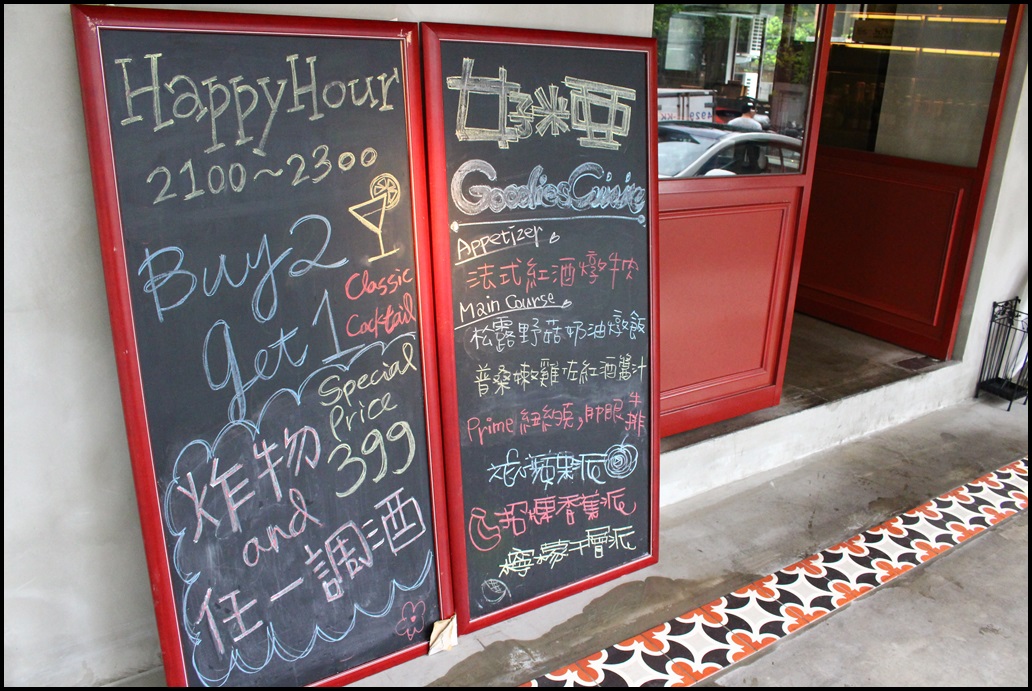 HappyHour
2100～2300
Buy 2
get 1
Classic
Cocktail
Special
Price
399
炸物
and
任一調酒
好米亞
Goodies Cuisine
Appetizer
法式紅酒燉牛肉
Main Course
松露野菇奶油燉飯
普桑嫩雞佐紅酒醬汁
Prime紐約克,肋眼牛排
蘋果派
招牌香蕉派
檸檬千層派
4929